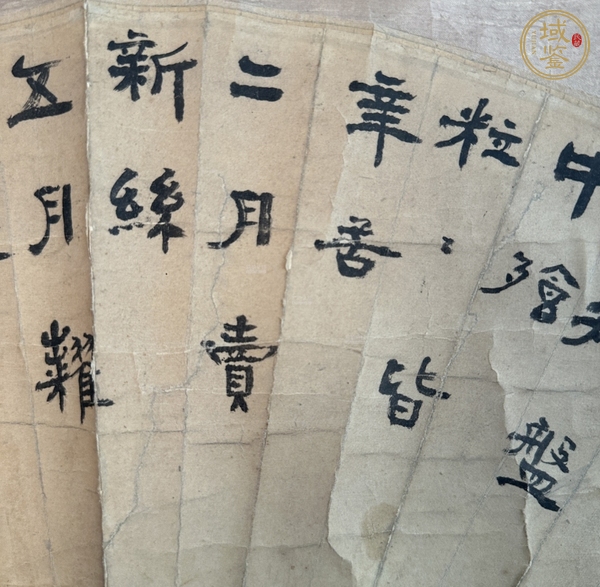 盤
中飧
粒〻皆
辛苦
二月賣
新絲
五月糶
域鑒